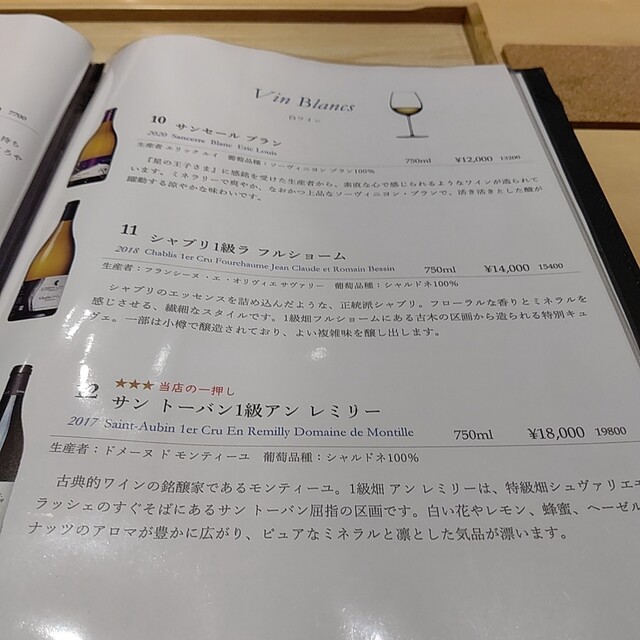 7700
持ち
ろや
Vin Blancs
白ワイン
10 サンセール ブラン
2020 Sancerre Blanc Eric Louis 750ml ¥12,000 13200
生産者 エリック ルイ 葡萄品種:ソーヴィニヨン ブラン100%
『星の王子さま』に感銘を受けた生産者から、素直な心で感じられるようなワインが造られて
います。ミネラリーで爽やか、なおかつ上品なソーヴィニヨン・ブランで、活き活きとした酸が
躍動する涼やかな味わいです。
11 シャブリ1級ラ フルショーム
2018 Chablis 1er Cru Fourchaume Jean Claude et Romain Bessin 750ml ¥14,000 15400
生産者:フランシーヌ・エ・オリヴィエ サヴァリー 葡萄品種:シャルドネ100%
シャブリのエッセンスを詰め込んだような、正統派シャブリ。フローラルな香りとミネラルを
感じさせる、繊細なスタイルです。1級畑フルショームにある古木の区画から造られる特別キュ
ヴェ。一部は小樽で醸造されており、よい複雑味を醸し出します。
12 ★★★ 当店の一押し
サン トーバン1級アン レミリー
2017 Saint-Aubin 1er Cru En Remilly Domaine de Montille 750ml ¥18,000 19800
生産者:ドメーヌ ド モンティーユ 葡萄品種:シャルドネ100%
古典的ワインの銘醸家であるモンティーユ。1級畑 アン レミリーは、特級畑シュヴァリエ
ラッシェのすぐそばにあるサン トーバン屈指の区画です。白い花やレモン、蜂蜜、ヘーゼル
ナッツのアロマが豊かに広がり、ピュアなミネラルと凛とした気品が漂います。